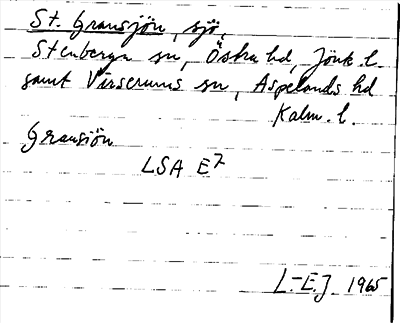 St. Gransjön, sjö,
Stenberga sn, Östra hd, Jönk. l.
samt Virserums sn, Aspelands hd
Kalm. l.
Gransjön
LSA E7
L.-E.J 1965